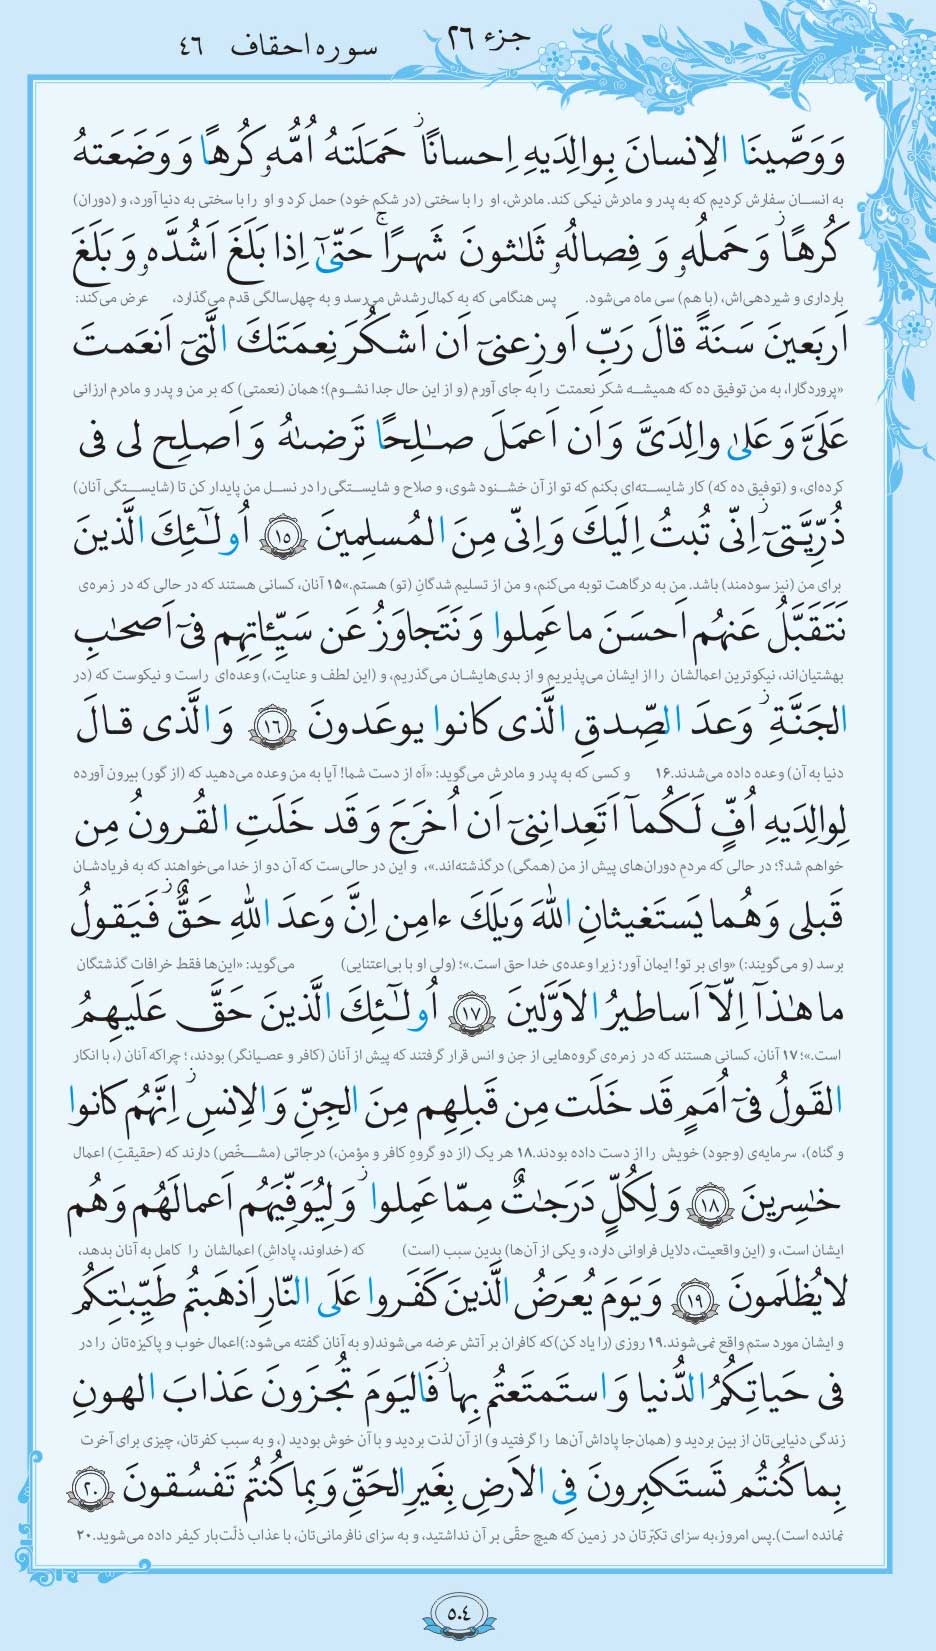 جزء ۲۶
سوره احقاف ۴۶
وَ وَصَّينَا الاِنسانَ بِوالِدَيهِ اِحسانًا ۖ حَمَلَتهُ اُمُّه‌و كُرهًا وَ وَضَعَتهُ
به انسان سفارش کردیم که به پدر و مادرش نیکی کند. مادرش، او را با سختی (در شکم خود) حمل کرد و او را با سختی به دنیا آورد، و (دوران)
كُرهًا ۖ وَ حَملُه‌و وَ فِصالُه‌و ثَلٰثونَ شَهرًا ۚ حَتّىٰٓ اِذا بَلَغَ اَشُدَّه‌و وَ بَلَغَ
بارداری و شیردهی‌اش، (با هم) سی ماه می‌شود. پس هنگامی که به کمال رشدش می‌رسد و به چهل‌سالگی قدم می‌گذارد، عرض می‌کند:
اَربَعينَ سَنَةً قالَ رَبِّ اَوزِعنىٓ اَن اَشكُرَ نِعمَتَكَ الَّتىٓ اَنعَمتَ
«پروردگارا، به من توفیق ده که همیشه شکر نعمتت را به جای آورم (و از این حال جدا نشوم)؛ همان (نعمتی) که بر من و پدر و مادرم ارزانی
عَلَىَّ وَ عَلىٰ والِدَىَّ وَ اَن اَعمَلَ صٰلِحًا تَرضىٰهُ وَ اَصلِح لى فى
کرده‌ای، و (توفیق ده که) کار شایسته‌ای بکنم که تو از آن خشنود شوی، و صلاح و شایستگی را در نسل من پایدار کن تا (شایستگی آنان)
ذُرِّيَّتىٓ ۖ اِنّى تُبتُ اِلَيكَ وَ اِنّى مِنَ المُسلِمينَ ﴿١٥﴾ اُولٰٓئِكَ الَّذينَ
برای من (نیز سودمند) باشد. من به درگاهت توبه می‌کنم، و من از تسلیم شدگانِ (تو) هستم.»۱۵ آنان، کسانی هستند که در حالی که در زمره‌ی
نَتَقَبَّلُ عَنهُم اَحسَنَ ما عَمِلوا وَ نَتَجاوَزُ عَن سَيِّـٔاتِهِم فىٓ اَصحٰبِ
بهشتیان‌اند، نیکوترین اعمالشان را از ایشان می‌پذیریم و از بدی‌هایشان می‌گذریم، و (این لطف و عنایت،) وعده‌ای راست و نیکوست که (در
الجَنَّةِ ۖ وَعدَ الصِّدقِ الَّذى كانوا يوعَدونَ ﴿١٦﴾ وَ الَّذى قالَ
دنیا به آن) وعده داده می‌شدند.۱۶ و کسی که به پدر و مادرش می‌گوید: «اَه از دست شما! آیا به من وعده می‌دهید که (از گور) بیرون آورده
لِوالِدَيهِ اُفٍّ لَكُمآ اَتَعِدانِنىٓ اَن اُخرَجَ وَ قَد خَلَتِ القُرونُ مِن
خواهم شد؟؛ در حالی که مردمِ دوران‌های پیش از من (همگی) درگذشته‌اند.»، و این در حالی‌ست که آن دو از خدا می‌خواهند که به فریادشان
قَبلى وَ هُما يَستَغيثانِ اللهَ وَيلَكَ ءامِن اِنَّ وَعدَ اللهِ حَقٌّ ۖ فَيَقولُ
برسد (و می‌گویند:) «وای بر تو! ایمان آور؛ زیرا وعده‌ی خدا حق است.»؛ (ولی او با بی‌اعتنایی) می‌گوید: «این‌ها فقط خرافات گذشتگان
ما هٰذآ اِلّآ اَساطيرُ الاَوَّلينَ ﴿١٧﴾ اُولٰٓئِكَ الَّذينَ حَقَّ عَلَيهِمُ
است.»؛۱۷ آنان، کسانی هستند که در زمره‌ی گروه‌هایی از جن و انس قرار گرفتند که پیش از آنان (کافر و عصیانگر) بودند،؛ چراکه آنان (، با انکار
القَولُ فىٓ اُمَمٍ قَد خَلَت مِن قَبلِهِم مِنَ الجِنِّ وَ الاِنسِ ۖ اِنَّهُم كانوا
و گناه)، سرمایه‌ی (وجود) خویش را از دست داده بودند.۱۸ هر یک (از دو گروهِ کافر و مؤمن،) درجاتی (مشخّص) دارند که (حقیقتِ) اعمال
خٰسِرينَ ﴿١٨﴾ وَ لِكُلٍّ دَرَجٰتٌ مِمّا عَمِلوا ۖ وَ لِيُوَفِّيَهُم اَعمالَهُم وَ هُم
ایشان است، و (این واقعیت، دلایل فراوانی دارد، و یکی از آن‌ها) بدین سبب (است) که (خداوند، پاداشِ) اعمالشان را کامل به آنان بدهد،
لا يُظلَمونَ ﴿١٩﴾ وَ يَومَ يُعرَضُ الَّذينَ كَفَروا عَلَى النّارِ اَذهَبتُم طَيِّبٰتِكُم
و ایشان مورد ستم واقع نمی‌شوند.۱۹ روزی (را یاد کن) که کافران بر آتش عرضه می‌شوند(و به آنان گفته می‌شود:)اعمال خوب و پاکیزه‌تان را در
فى حَياتِكُمُ الدُّنيا وَ استَمتَعتُم بِها ۖ فَاليَومَ تُجزَونَ عَذابَ الهونِ
زندگی دنیایی‌تان از بین بردید و (همان‌جا پاداش آن‌ها را گرفتید و) از آن لذت بردید و با آن خوش بودید (، و به سبب کفرتان، چیزی برای آخرت
بِما كُنتُم تَستَكبِرونَ فِى الاَرضِ بِغَيرِ الحَقِّ وَ بِما كُنتُم تَفسُقونَ ﴿٢٠﴾
نمانده است).پس امروز،به سزای تکبّرتان در زمین که هیچ حقّی بر آن نداشتید، و به سزای نافرمانی‌تان، با عذاب ذلّت‌بار کیفر داده می‌شوید.۲۰
۵۰۴